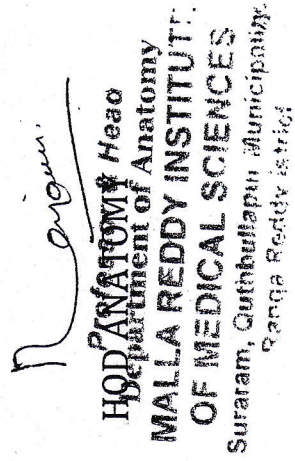 Professor & Head
HOD ANATOMY
Department of Anatomy
MALLA REDDY INSTITUTE
OF MEDICAL SCIENCES
Suraram, Quthbullapur Municipality,
Ranga Reddy District